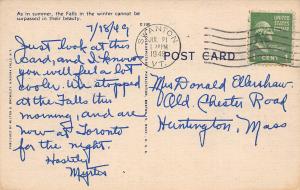 As in summer, the Falls in the winter cannot be
surpassed in their beauty.
7/18/49
Just look at this
card, and I know
you will feel a lot
cooler. We stopped
at the Falls this
morning, and are
now at Toronto
for the night.
Hastily
Myrtis
SWANTON
JUL
1 PM
1949
VT.
1 CENT
POST CARD
Mrs Donald Ellershaw
Old Chester Road
Huntington, Mass